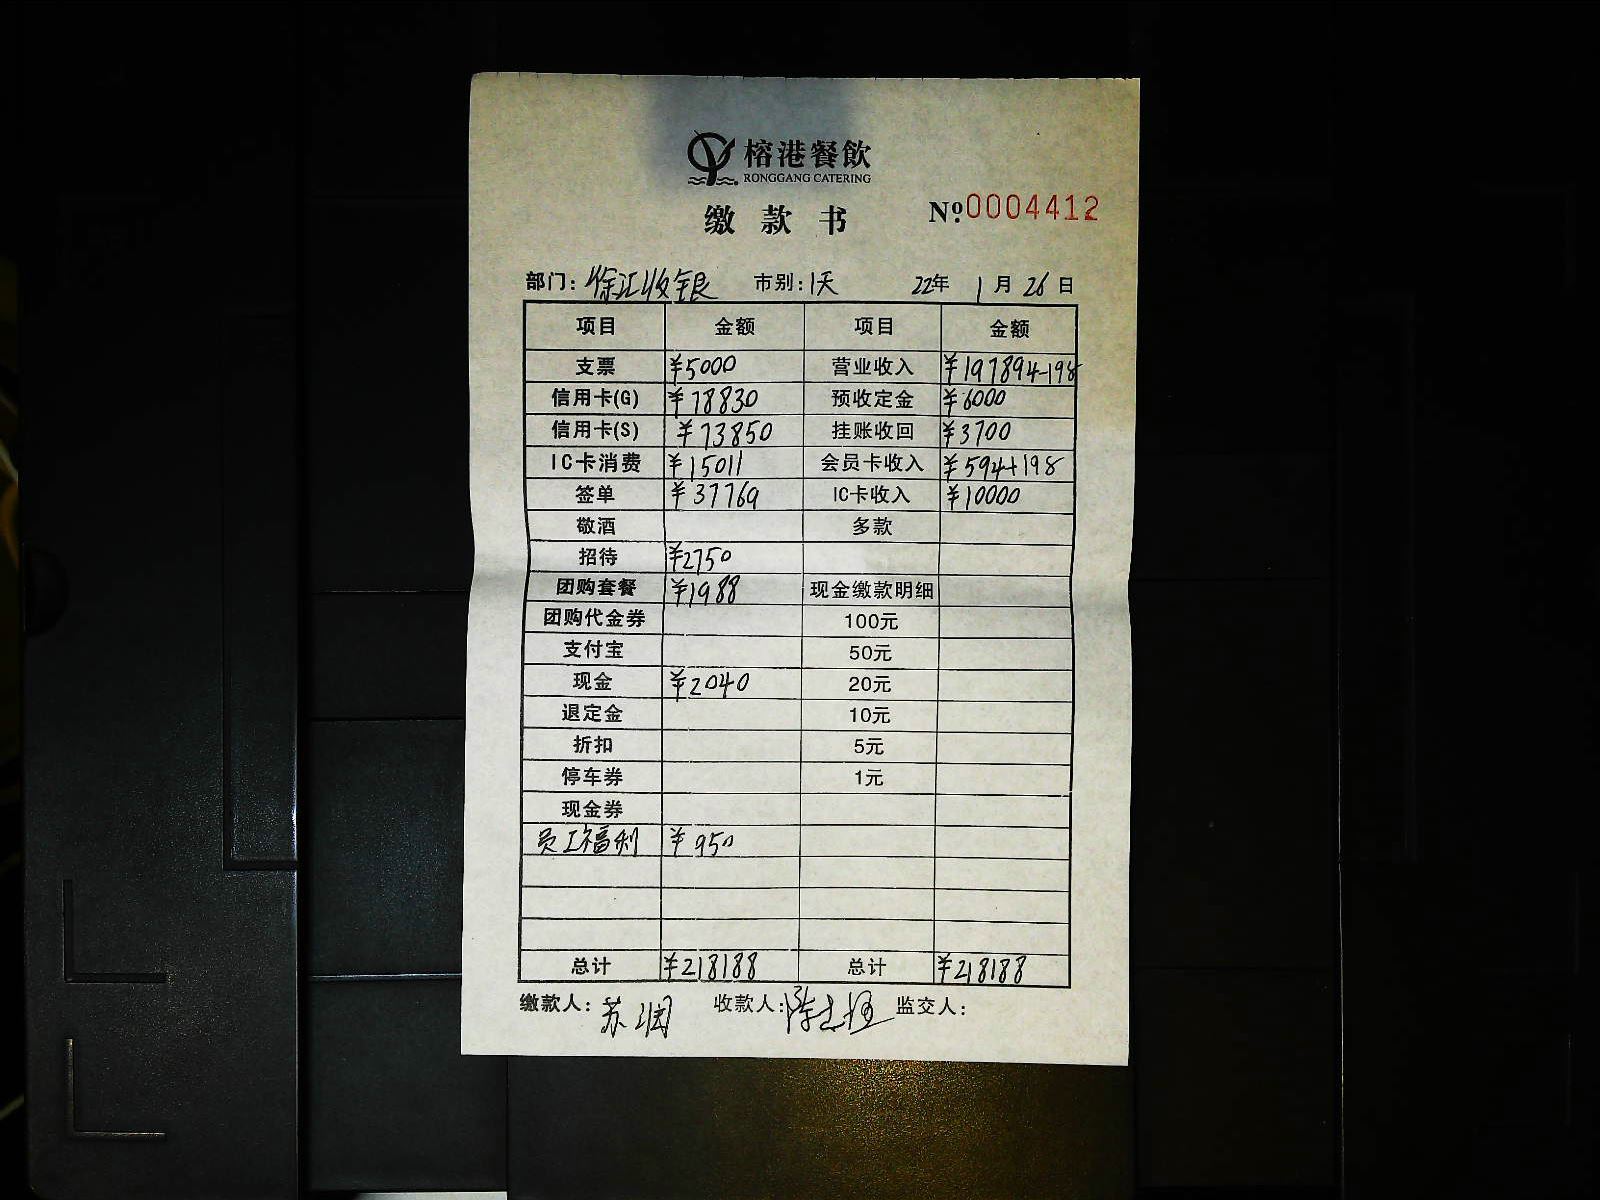 榕港餐飲
RONGGANG CATERING
缴款书
Nº 0004412
部门: 徐汇收银 市别: 1天 22年 1月 26日
项目 金额 项目 金额
支票 ¥5000 营业收入 ¥197894-198
信用卡(G) ¥78830 预收定金 ¥6000
信用卡(S) ¥73850 挂账收回 ¥3700
IC卡消费 ¥15011 会员卡收入 ¥594+198
签单 ¥37769 IC卡收入 ¥10000
敬酒 多款
招待 ¥2750
团购套餐 ¥1988 现金缴款明细
团购代金券 100元
支付宝 50元
现金 ¥2040 20元
退定金 10元
折扣 5元
停车券 1元
现金券
员工福利 ¥950
总计 ¥218188 总计 ¥218188
缴款人: 苏润 收款人: 监交人: